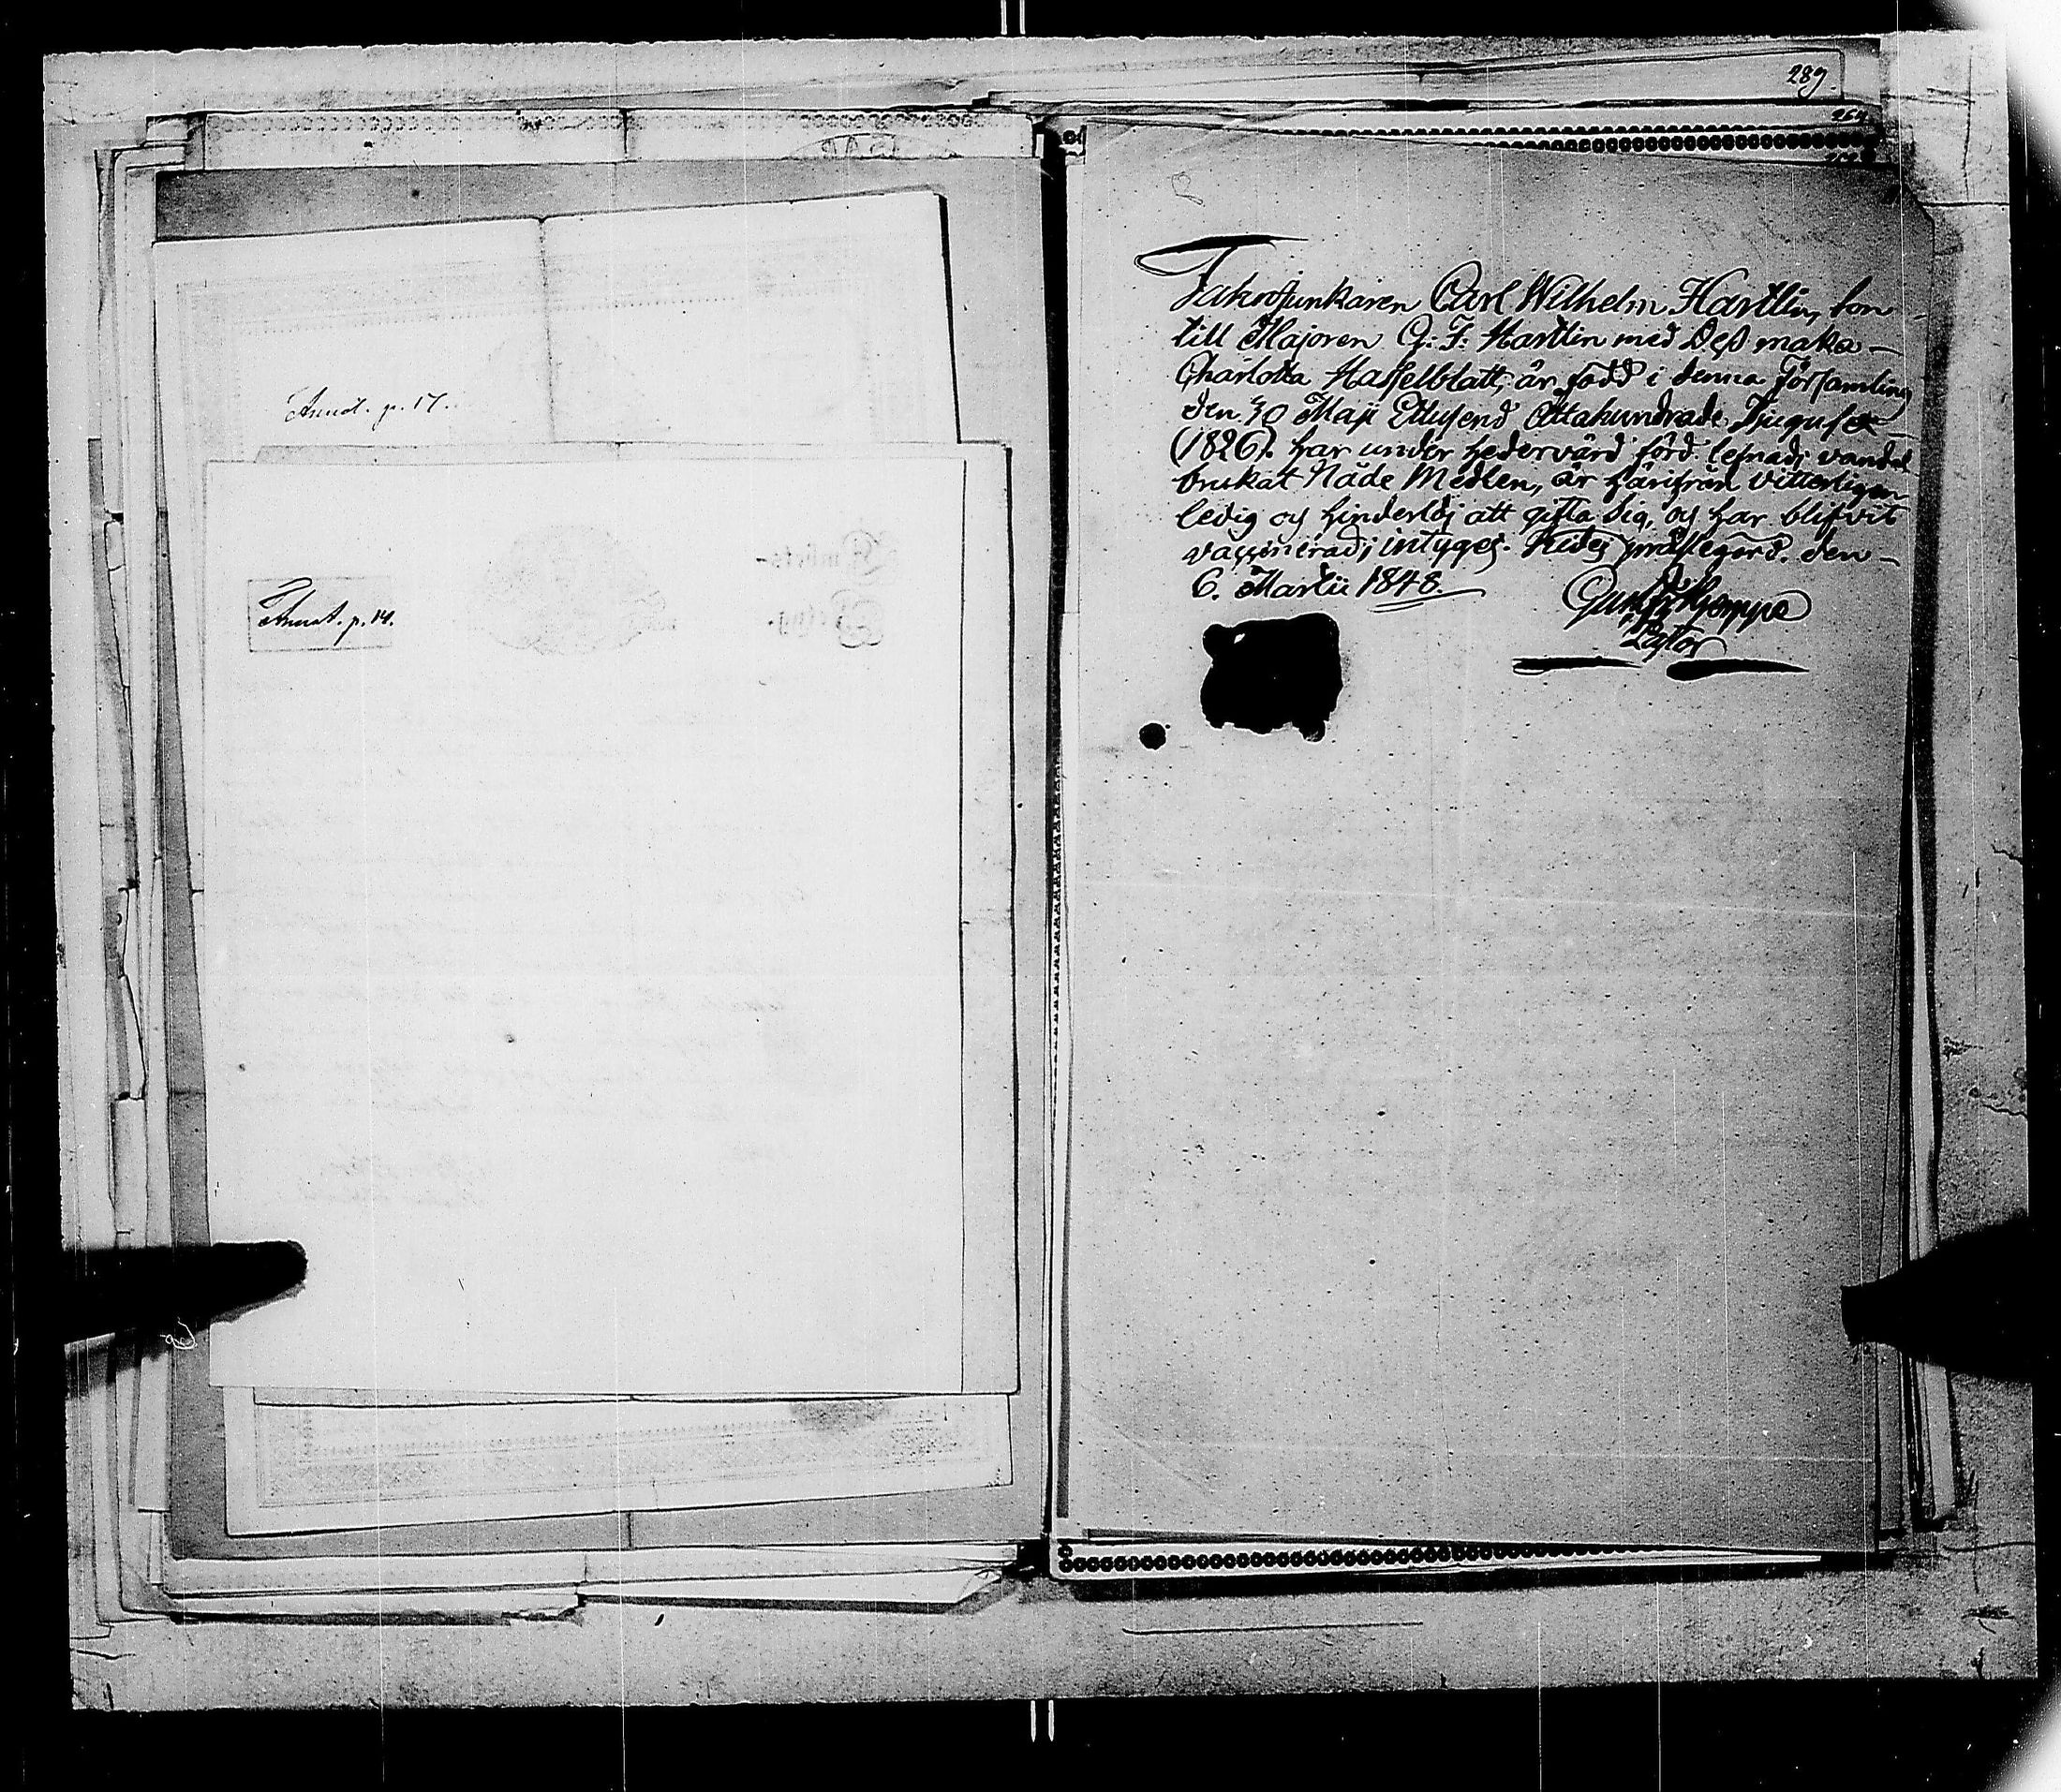 Annot. p. 17.
Annot. p. 14.
289.
Fahnejunkaren Carl Wilhelm Hartlin, son
till Majoren G: F: Hartlin med Deß maka
Charlotta Haſſelblatt, är född i denna Förſamling
den 30 Maji Ettuſend Åttahundrade Tjuguſex
(1826). har under hedervärd förd lefnads vandel
brukat Nåde Medlen, är härifrån vitterligen
ledig og hinderlös att gifta sig, og har blifvit
vaccinerad; intyges. präſtegård. den
6. Martii 1848.
Paſtor